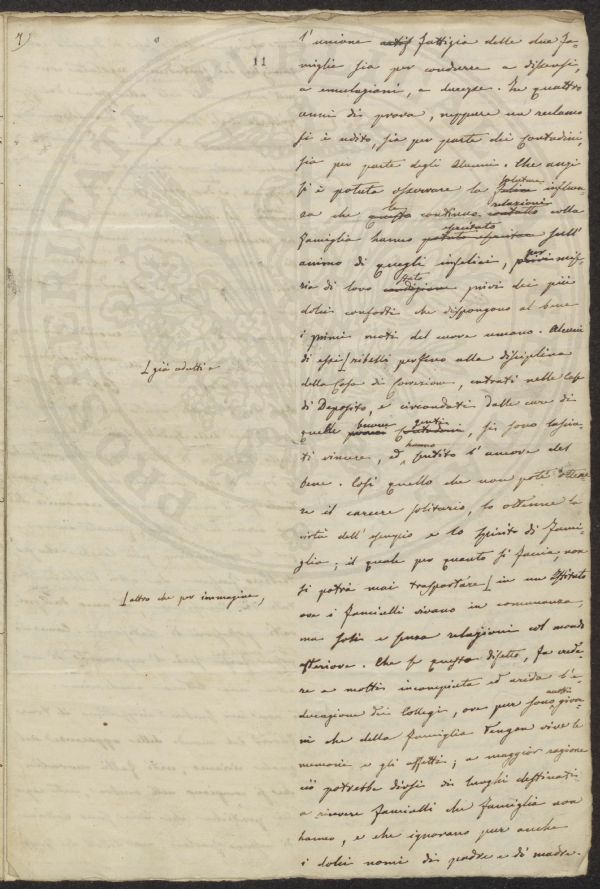 7)
11
l'unione fattizia delle due fa-
miglie sia per condurre a dissensi,
a emulazioni, a ducezze. In quattro
anni di prova, neppure un reclamo
si è udito, sia per parte dei Contadini,
sia per parte degli Alunni. Che anzi
si è potuta osservare la salutare influen
za che le continue relazioni colla
famiglia hanno esercitato sull'
animo di quegli infelici, per mise-
ria di loro stato privi dei più
dolci conforti che dispongono al bene
i primi moti del cuore umano. Alcuni
di essi [ ribelli persino alla disciplina
[ già adulti e
della Casa di Correzione, entrati nelle Case
di Deposito, e circondati dalle cure di
quelle buone genti, si sono lascia-
ti vincere, ed hanno sentito l'amore del
bene. Così quello che non poté ottene
re il carcere solitario, lo ottenne la
virtù dell'esempio e lo spirito di Fami-
glia; il quale per quanto si faccia, non
si potrà mai trasportare [ in un Istituto
[ altro che per immagine,
ove i fanciulli vivano in comunanza,
ma soli e senza relazioni col mondo
esteriore. Che se questo difetto, fa crede-
re a molti incompiuta ed arida l'e-
ducazione dei Collegi, ove pur sono molti giova-
ni che della famiglia tengon vive le
memorie e gli affetti; a maggior ragione
ciò potrebbe dirsi di luoghi destinati
a ricevere fanciulli che famiglia non
hanno, e che ignorano pur anche
i dolci nomi di padre e di madre.